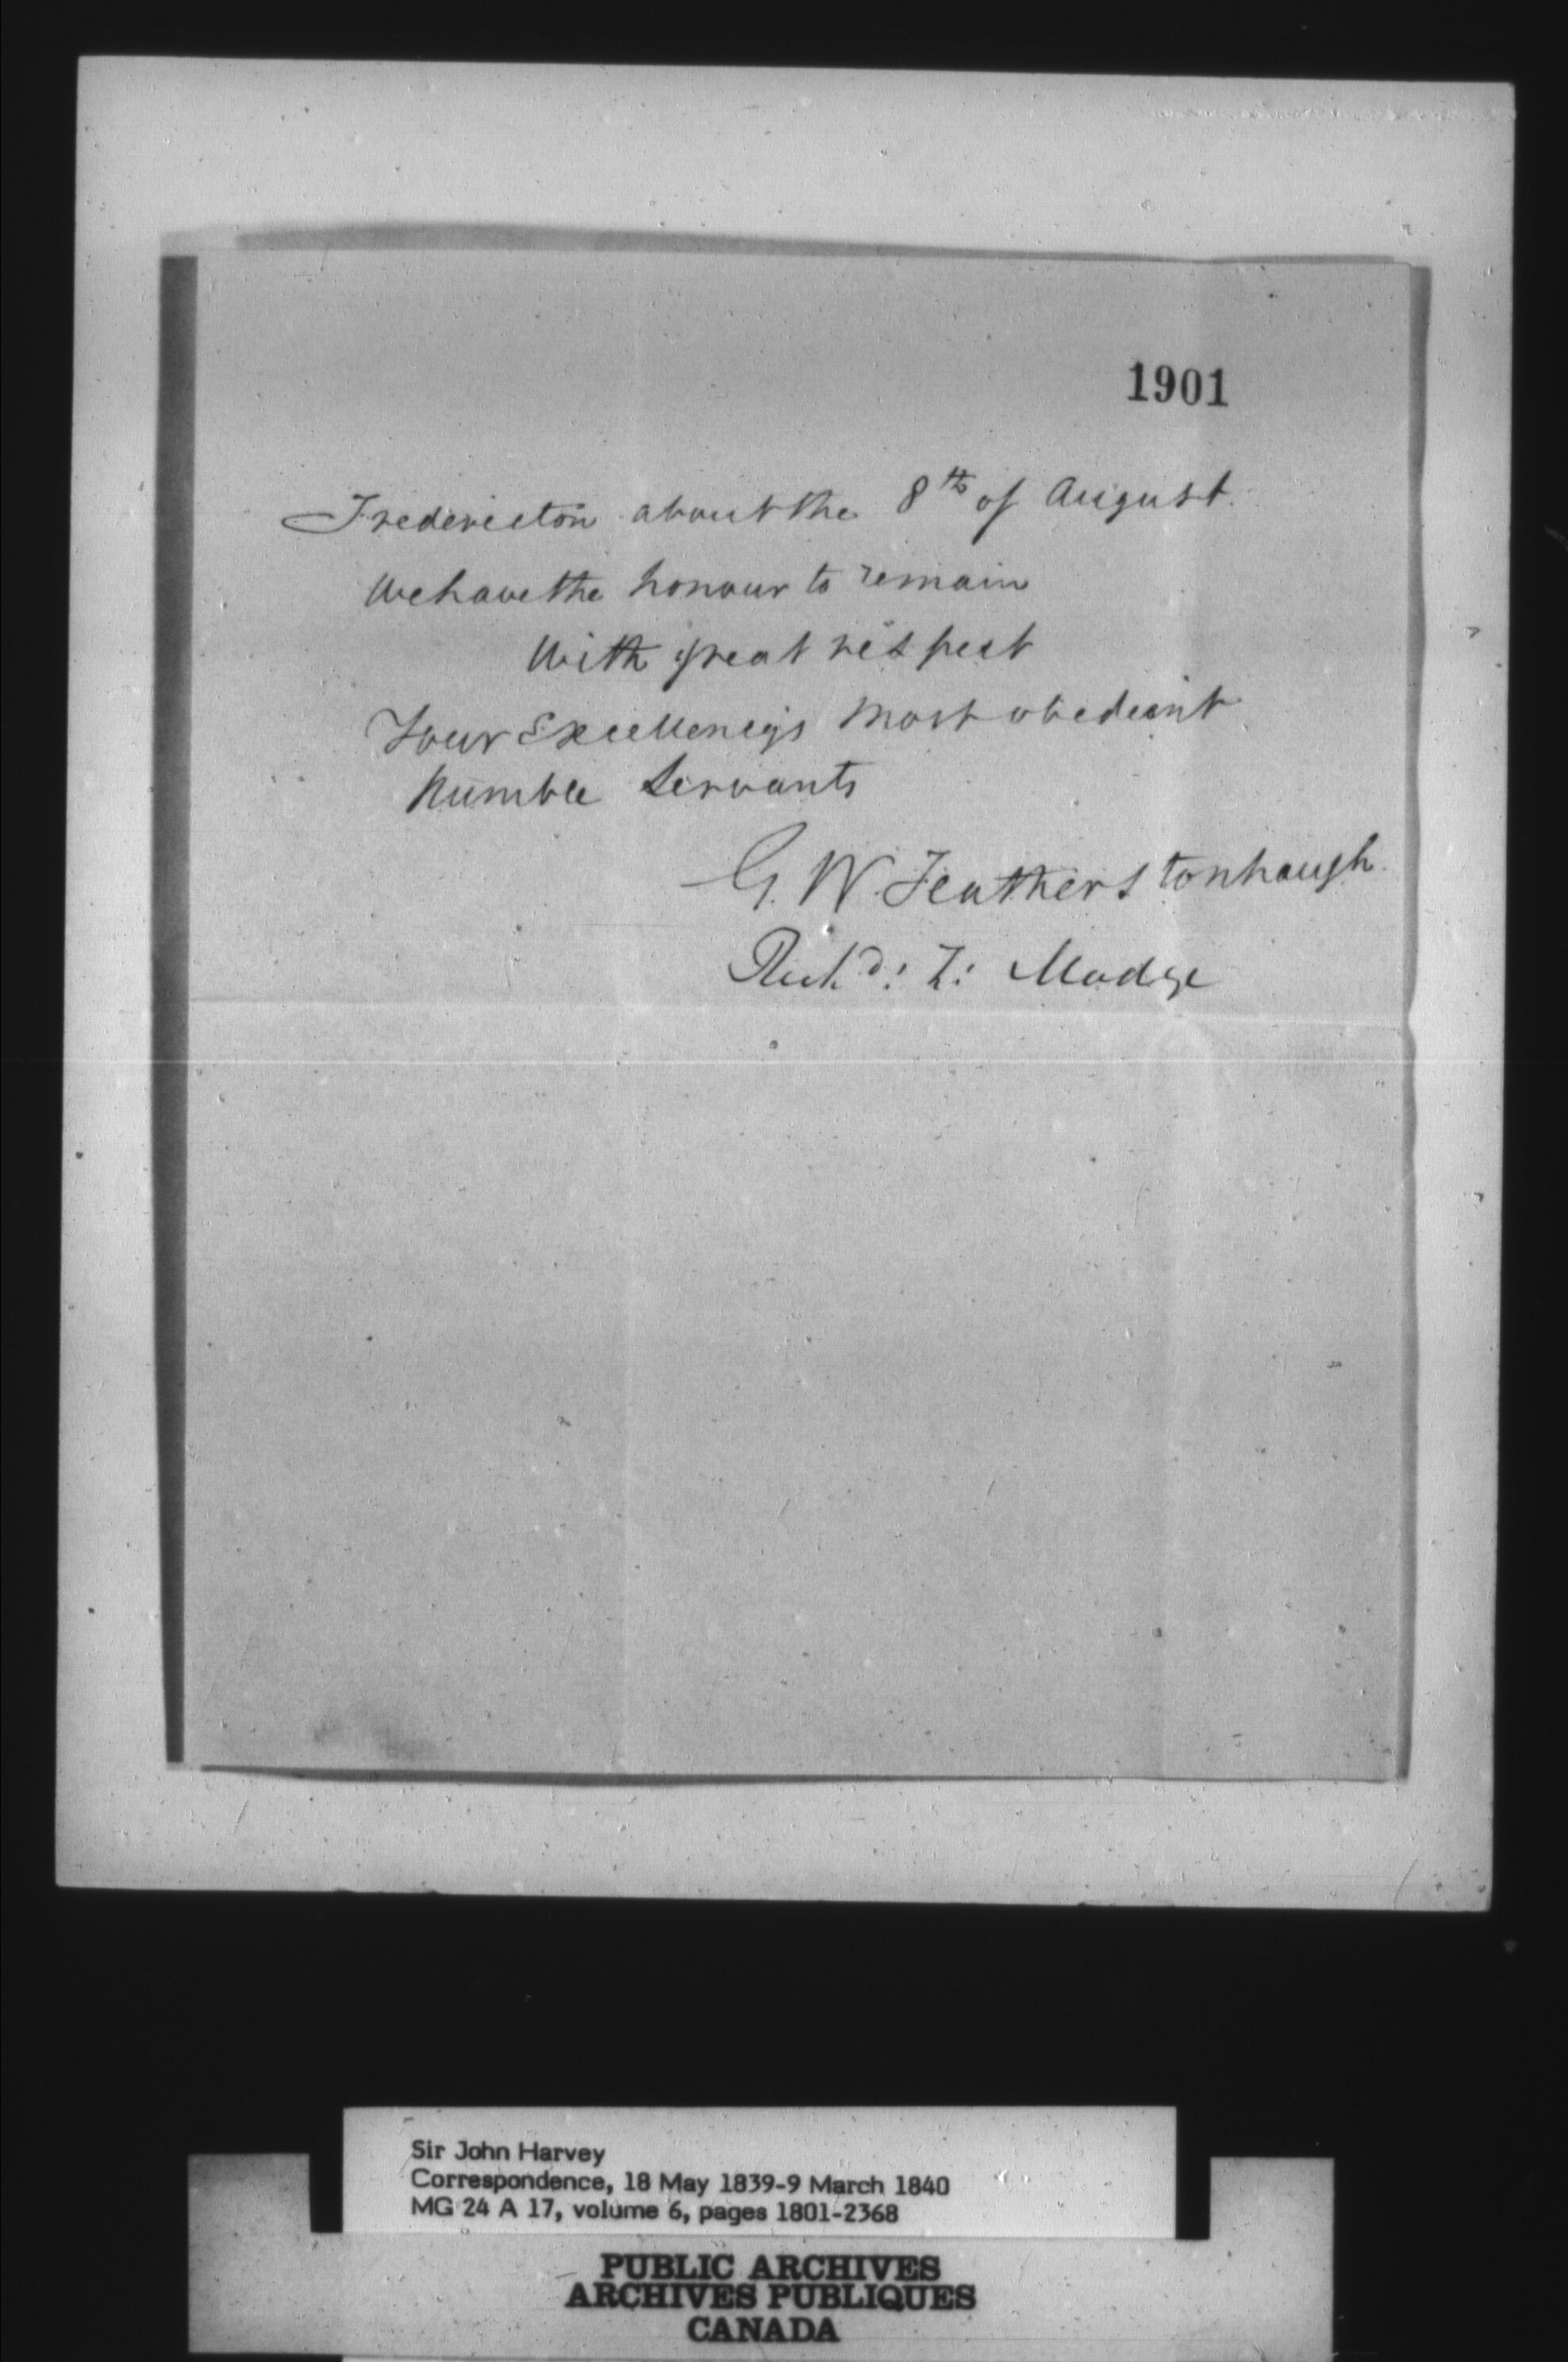 1901
Fredericton about the 8th of August.
We have the honour to remain
With great respect
Your Excellency's most obedient
Humble Servants
G. W. Featherstonhaugh
Rich'd: Z: Mudge
Sir John Harvey
Correspondence, 18 May 1839-9 March 1840
MG 24 A 17, volume 6, pages 1801-2368
PUBLIC ARCHIVES
ARCHIVES PUBLIQUES
CANADA